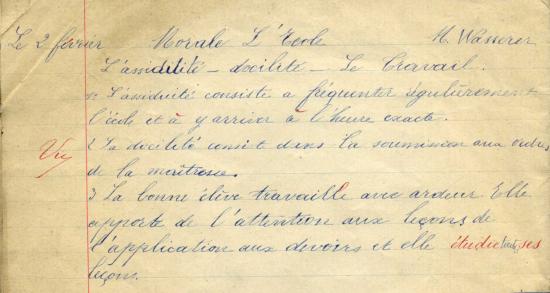 Le 2 février Morale L'Ecole M. Wasserer
L'assiduité - docilité - Le Travail.
1. L'assiduité consiste a fréquenter régulièrement
l'école et à y arriver à l'heure exacte.
2 La docilité consit dans la soumission aux ordres
Vu
de la maîtresse.
3 La bonne élève travaille avec ardeur. Elle
apporte de l'attention aux leçons de
l'application aux devoirs et elle étudie ses
leçons.